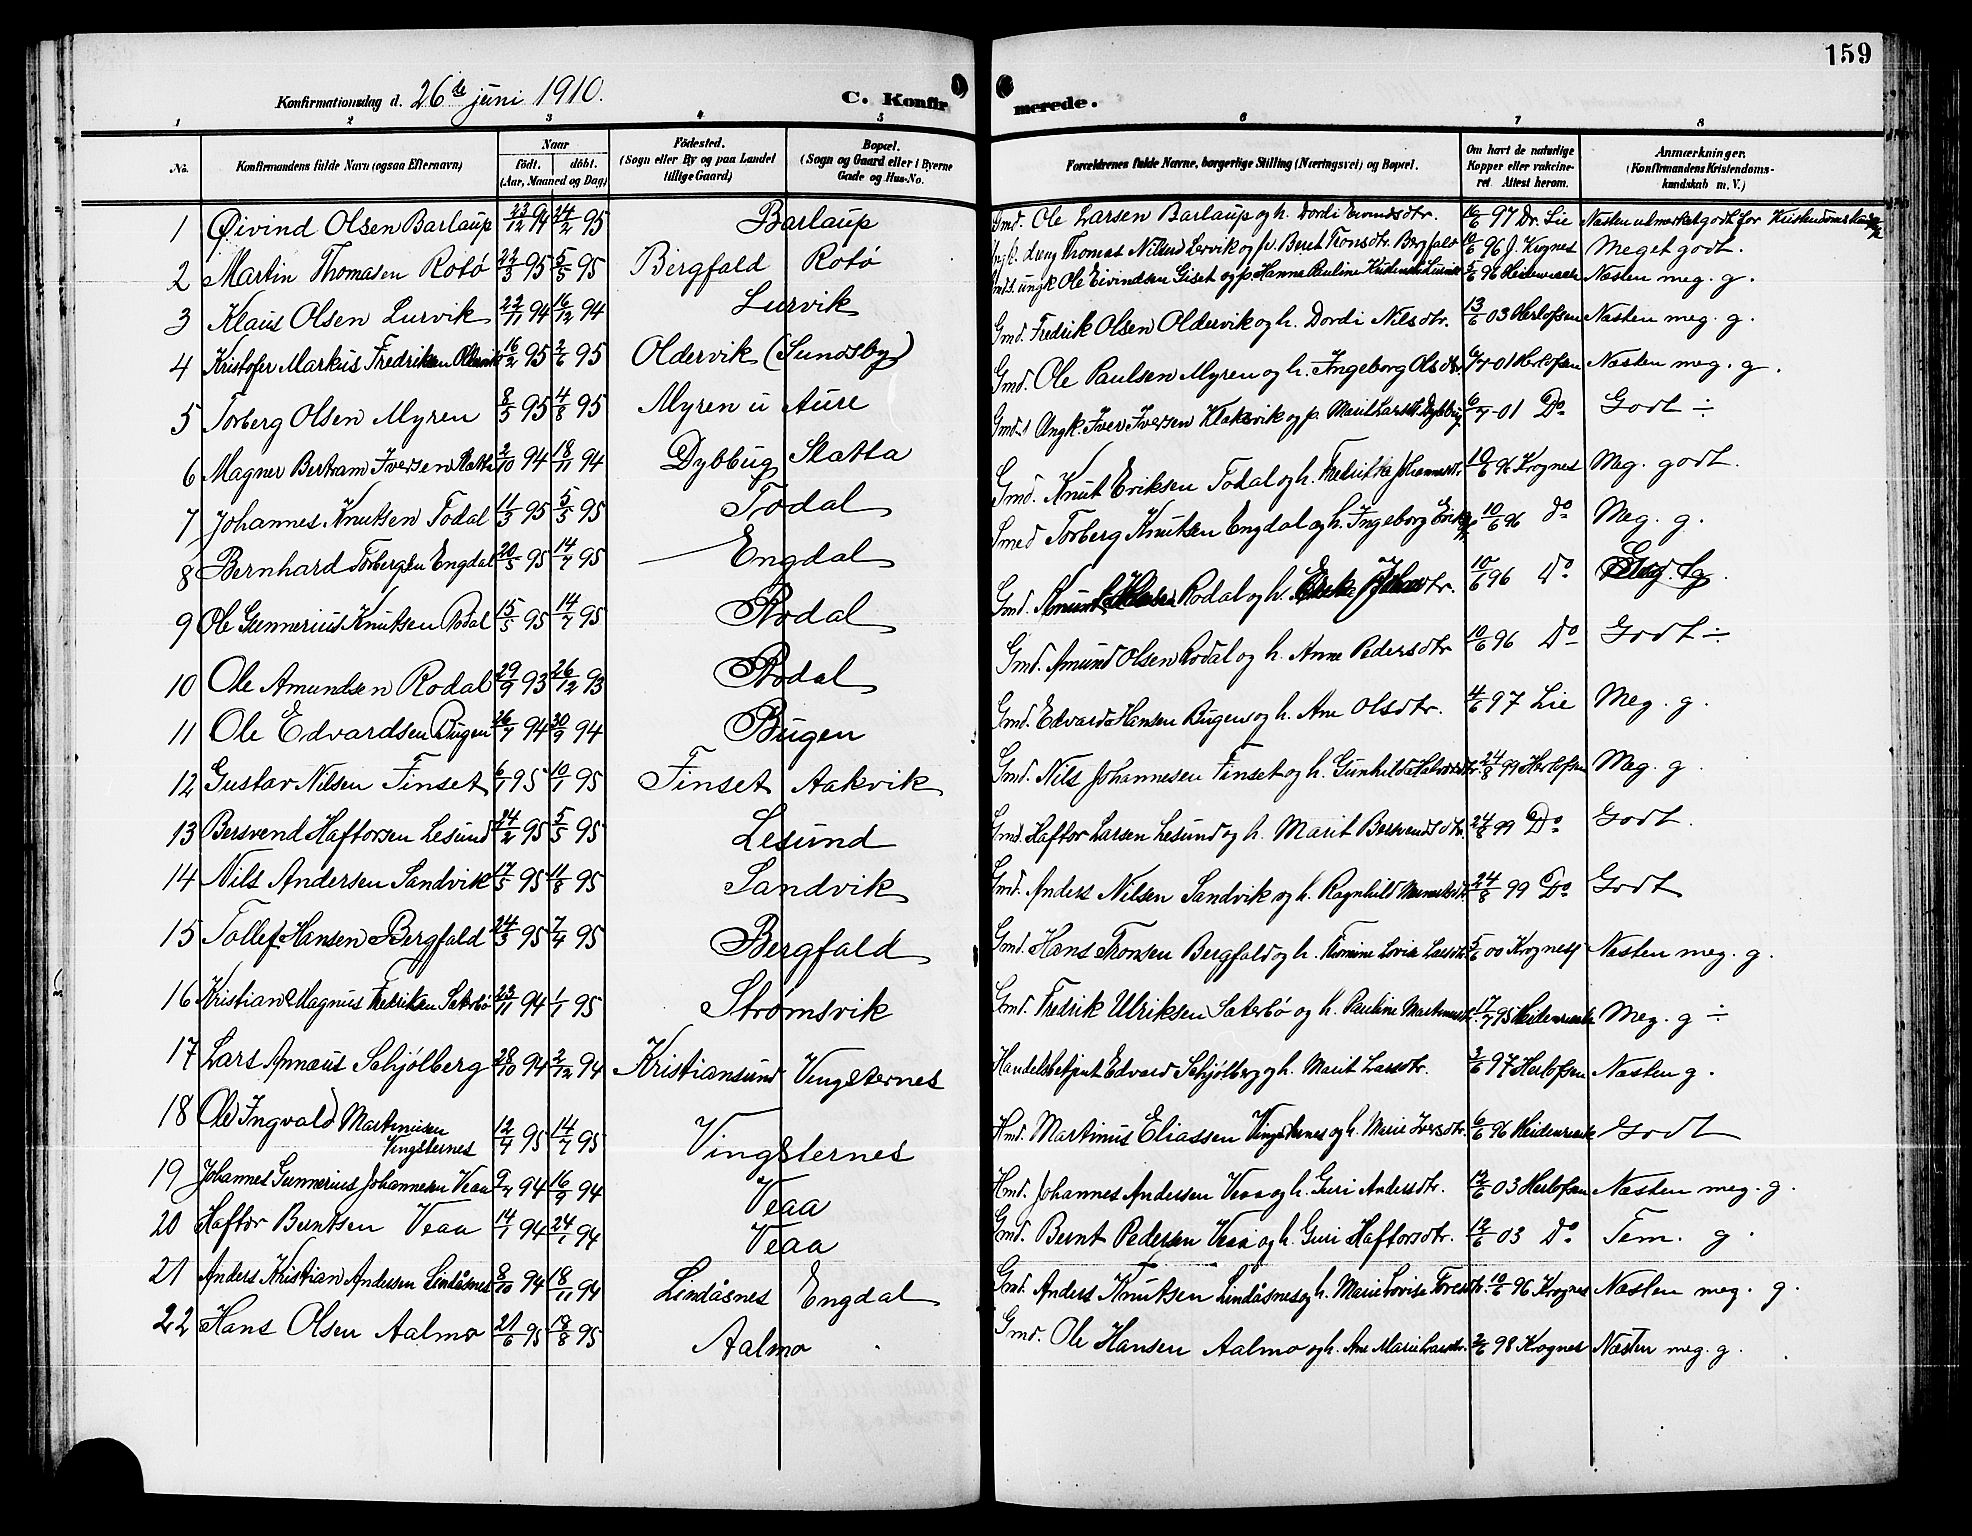 159
Konfirmationsdag d. 26de juni 1910. C. Konfirmerede.
1 2 3 4 5 6 7 8
No. Konfirmandens fulde Navn (ogsaa Efternavn) Naar födt. döbt. (Aar, Maaned og Dag) Födested. (Sogn eller By og paa Landet tillige Gaard) Bopæl. (Sogn og Gaard eller i Byerne Gade og Hus-No. Forældrenes fulde Navne, borgerlige Stilling (Næringsvei) og Bopæl. Om havt de naturlige Kopper eller vakcineret. Attest herom. Anmærkninger. (Konfirmandens Kristendomskundskab m. V.)
1 Øivind Olsen Barlaup 23/12 94 24/2 95 Barlaup Gmd. Ole Larsen Barlaup og h. Dordi Eivindsdtr. 16/6 97 Dr. Lie Næsten udmærket godt for Kristendomskundsk.
2 Martin Thomasen Rotø 22/3 95 5/5 95 Bergfald Rotø Thomas Nilsen Lervik og p. Beret Tronsdtr. Bergfald 10/6 96 J. Krognes Meget godt.
3 Klaus Olsen Lurvik 22/11 94 16/12 94 Lurvik ungk. Ole Eivindsen Giset og p. Hanna Pauline 5/6 96 Heidenreich Næsten meg. g.
4 Kristofer Markus Fredriksen Oldervik 16/2 95 2/6 95 Oldervik (Sundsby) Gmd. Fredrik Olsen Oldervik og h. Dordi Nilsdtr. 13/6 03 Herlofsen Næsten meg. g.
5 Torberg Olsen Myren 8/5 95 4/8 95 Myren u Aure Gmd. Ole Paulsen Myren og h. Ingeborg Olsdtr. 6/7 01 Herlofsen Næsten meg. g.
6 Magner Bertram Iversen Slatta 2/10 94 18/11 94 Dybbug Slatta Ungk. Iver Iversen Klaksvik og p. Marit Larsdt. Dybbug 6/7 01 Do Godt ÷
7 Johannes Knutsen Todal 11/3 95 5/5 95 Todal Gmd. Knut Eriksen Todal og h. Fredrikke Johannesdtr. 10/6 96 Krognes Meg. godt.
8 Bernhard Torbergsen Engdal 20/5 95 14/7 95 Engdal Smed Torberg Knutsen Engdal og h. Ingeborg Eriksd. 10/6 96 do Meg. g.
9 Ole Gunnerius Knutsen Rodal 15/5 95 14/7 95 Rodal Gmd. Knut Rodal og h. 10/6 96 Do Meg. g.
10 Ole Amundsen Rodal 29/9 93 26/12 93 Rodal Gmd. Amund Olsen Rodal og h. Anne Pedersdtr 10/6 96 Do Godt ÷
11 Ole Edvardsen Bugen 26/7 94 30/9 94 Bugen Gmd. Edvard Hansen Bugen og h. Ane Olsdtr. 4/6 97 Lie Meg. g.
12 Gustav Nilsen Finset 6/1 95 10/1 95 Finset Aakvik Gmd. Nils Johannesen Finset og h. Gunhild Halvorsdtr. 24/8 99 Herlofsen Meg. g.
13 Bersvend Haftorsen Lesund 24/2 95 5/5 95 Lesund Gmd. Haftor Larsen Lesund og h. Marit Bersvendsdtr. 24/8 99 Do Godt.
14 Nils Andersen Sandvik 17/5 95 11/8 95 Sandvik Gmd. Anders Nilsen Sandvik og h. Ragnhild 24/8 99 Do Godt
15 Tollef Hansen Bergfald 24/3 95 7/4 95 Bergfald Gmd. Hans Tronsen Bergfald og h. Lovise Larsdtr 5/6 00 Krognes Næsten meg. g.
16 Kristian Magnus Fredriksen Sæterbø 23/11 94 1/1 95 Strømsvik Gmd. Fredrik Ulriksen Sæterbø og h. Pauline 17/7 95 Heidenreich Meg. g ÷
17 Lars Annæus Schjølberg 28/10 94 2/12 94 Kristiansund Vingsternes Handelsbetjent Edvard Schjølberg og h. Marit Larsdtr. 3/6 97 Herlofsen Næsten g.
18 Ole Ingvald Martinusen Vingsternes 12/4 95 14/7 95 Vingsternes Hmd. Martinus Eliassen Vingsternes og h. Marie Iversdtr. 6/6 96 Heidenreich Godt
19 Johannes Gunnerius Johannesen Veaa 9/7 94 16/9 94 Veaa Hmd. Johannes Andersen Veaa og h. Guri Andersdtr. 12/6 03 Herlofsen Næsten meg. g.
20 Haftor Berntsen Veaa 14/1 94 24/1 94 Veaa Gmd. Bernt Pedersen Veaa og h. Guri Haftorsdtr. 12/6 03 Do Tem. g.
21 Anders Kristian Andersen Lindåsnes 8/10 94 18/11 94 Lindåsnes Engdal Gmd. Anders Knutsen Lindåsnes og h. Marie Lovise Toresdtr. 10/6 96 Krognes Næsten meg. g.
22 Hans Olsen Aalmo 21/6 95 18/8 95 Aalmo Gmd. Ole Hansen Aalmo og h. Ane Marie Larsdtr. 2/6 98 Krognes Næsten meg. g.